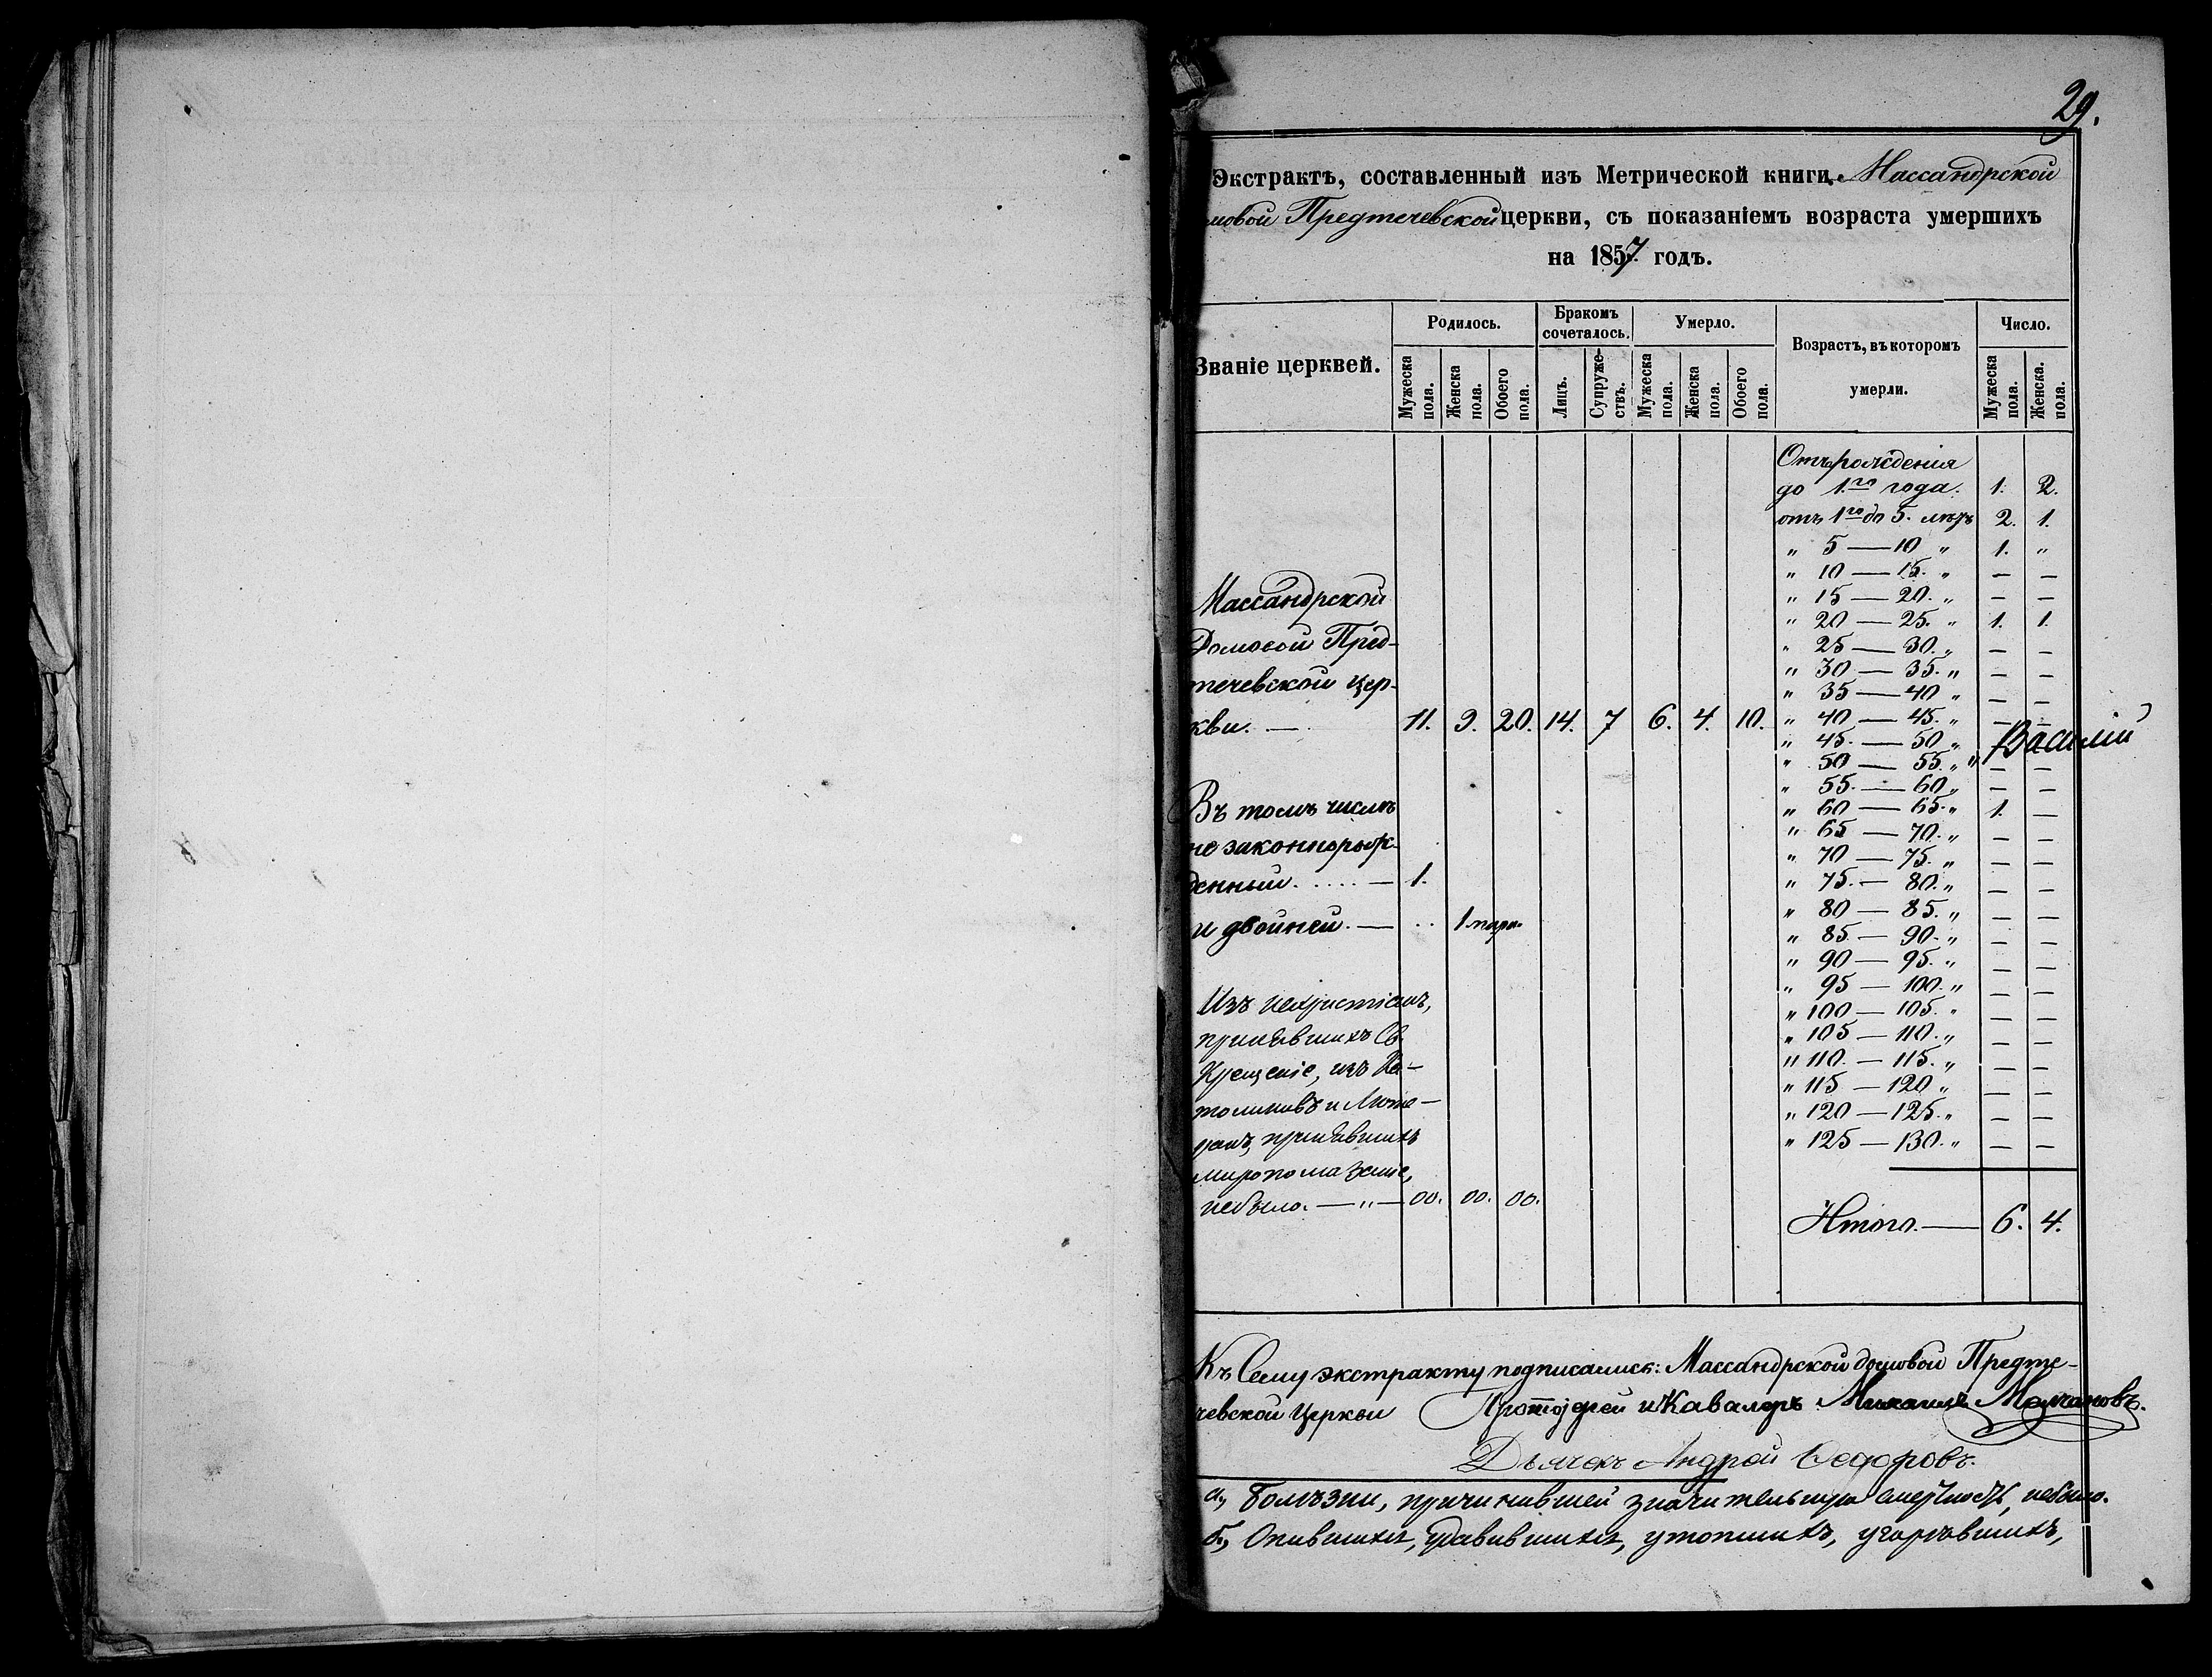 29.
Экстрактъ, составленный изъ Метрической книги Массандрской
мовой Предтечевской церкви, съ показаніемъ возраста умершихъ
на 1857 годъ.
Званіе церквей.
Родилось.
Бракомъ сочеталось.
Умерло.
Возрастъ, въ которомъ умерли.
Число.
Мужеска пола.
Женска пола.
Обоего пола.
Лицъ.
Супружествъ.
Мужеска пола.
Женска пола.
Обоего пола.
Мужеска пола.
Женска. пола.
Отъ рожденія
до 1.го года. 1. 2.
отъ 1го до 5. лѣтъ 2. 1.
„ 5 — 10 „ 1. „
„ 10 — 15. „ — —
„ 15 — 20. „ — —
„ 20 — 25. „ 1. 1.
„ 25 — 30. „ — —
„ 30 — 35. „ — —
„ 35 — 40 „ — —
„ 40 — 45. „ — —
„ 45. — 50 „ Василій
„ 50 — 55. „ „ — —
„ 55. — 60 „ — —
„ 60 — 65. „ 1. —
„ 65 — 70. „ — —
„ 70 — 75. „ — —
„ 75. — 80. „ — —
„ 80 — 85. „ — —
„ 85 — 90. „ — —
„ 90 — 95. „ — —
„ 95 — 100. „ — —
„ 100 — 105. „ — —
„ 105 — 110. „ — —
„ 110. — 115. „ — —
„ 115 — 120 „ — —
„ 120 — 125. „ — —
„ 125 — 130. „ — —
Итого. — 6. 4.
Массандрской
Домовой Пред-
течевской цер-
кви. — 11. 9. 20. 14. 7 6. 4. 10.
Въ томъ числѣ
не законнорож-
денный. .... — 1.
и двойней. — .. 1 пара.
Изъ нехристіанъ,
принявшихъ Св.
Крещеніе, изъ Ка-
толиковъ и Люте-
ранъ, принявшихъ
миропомазаніе,
небыло. — „ — 00. 00. 00.
Къ Сему экстракту подписались: Массандрской домовой Предте-
чевской Церкви Протоіерей и Кавалеръ Михаилъ Молчановъ.
Дьячекъ Андрей Ѳедоровъ.
а., Болѣзни, причинившей значительную смертность, небыло.
б., Опившихся, удавившихся, утопшихъ, угорѣвшихъ,